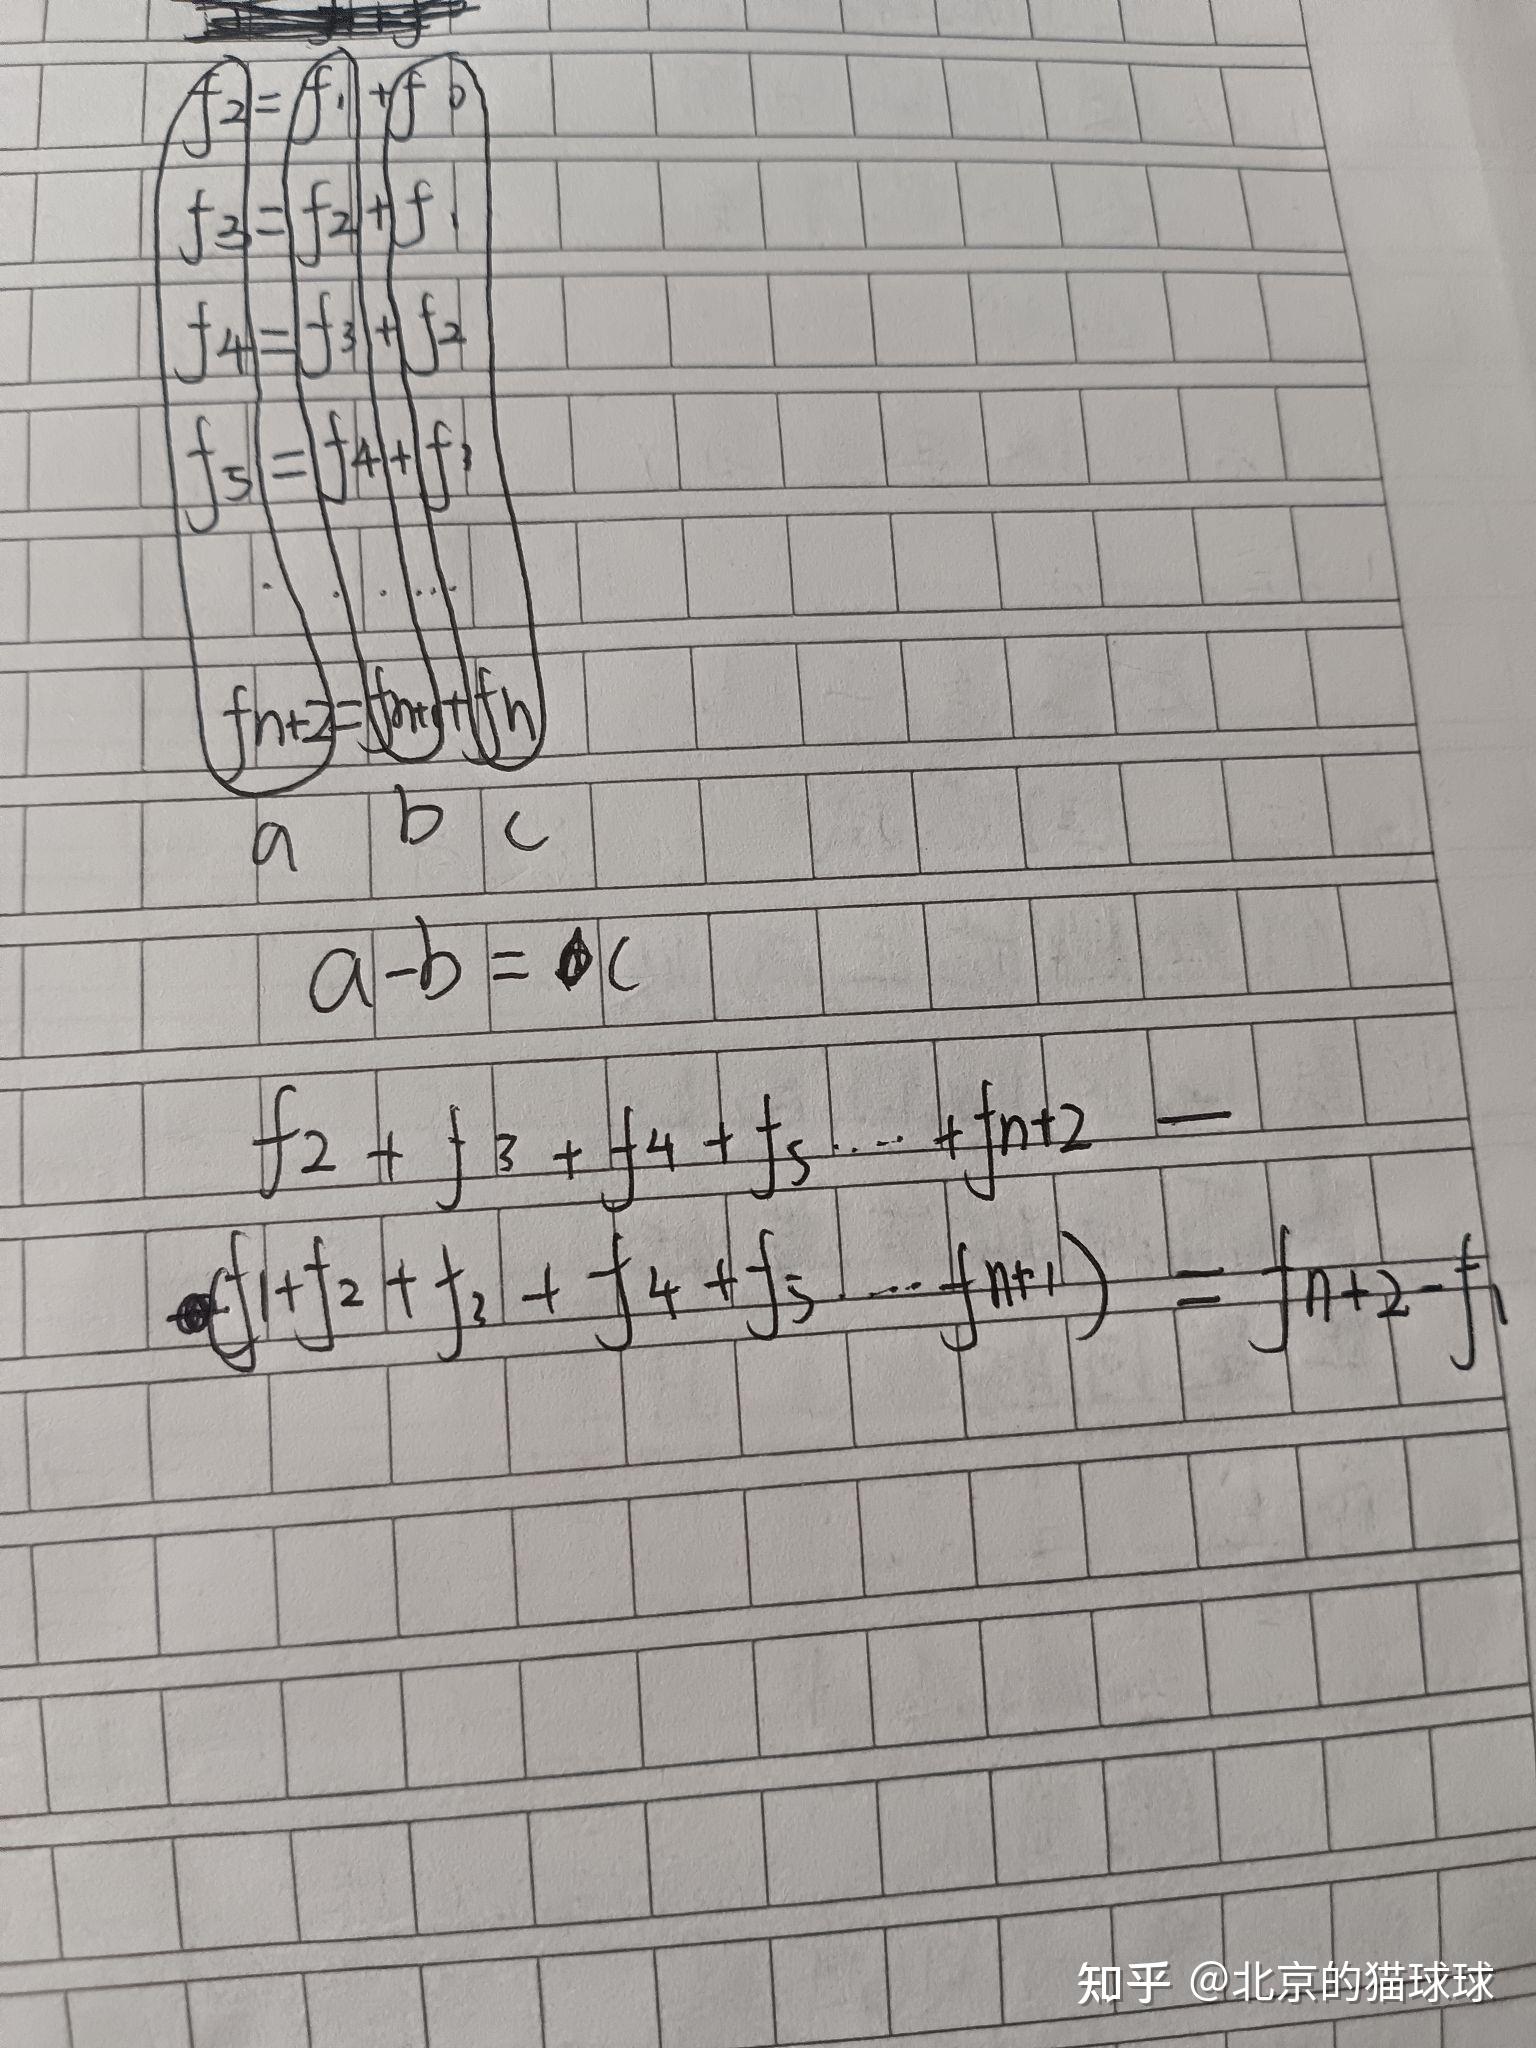 f2 = f1 + f0
f3 = f2 + f1
f4 = f3 + f2
f5 = f4 + f3
. . . ...
fn+2 = fn+1 + fn
a b c
a - b = c
f2 + f3 + f4 + f5 ..... + fn+2 —
(f1 + f2 + f3 + f4 + f5 .... fn+1) = fn+2 - f1
知乎 @北京的猫球球